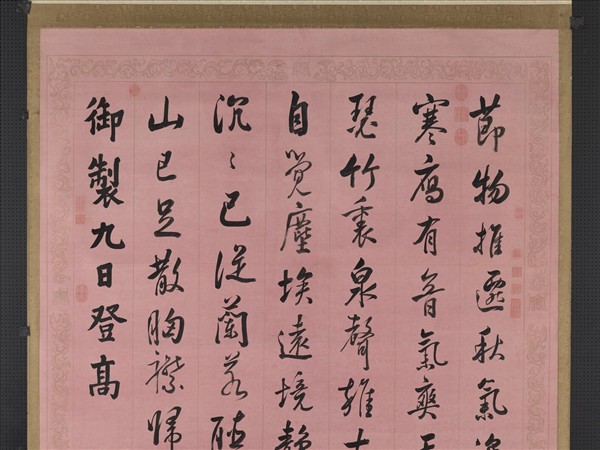 節物推遷秋氣
寒鴈有音氣爽
瑟竹裏泉聲雜
自覺塵埃遠境靜
沉〻已從蘭若聽
山已足散胸襟歸
御製九日登高